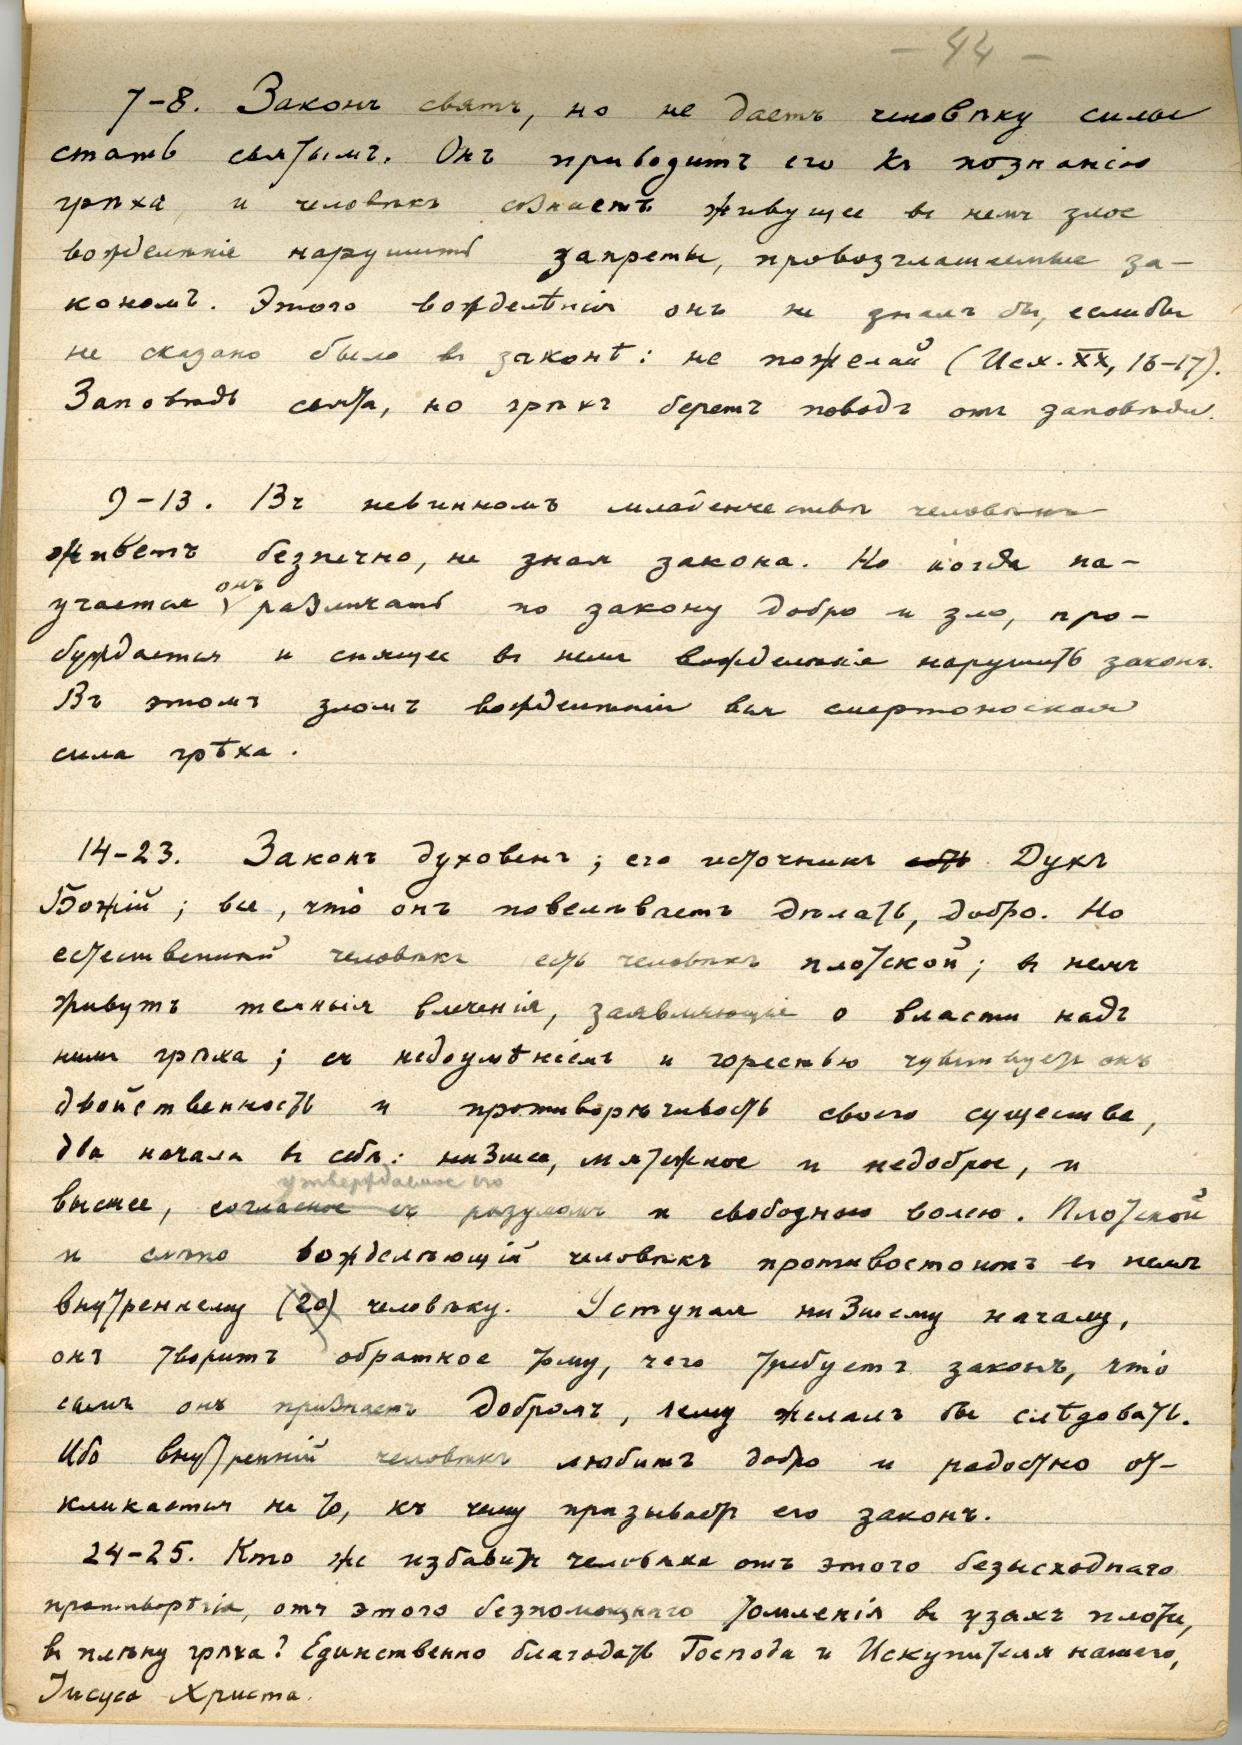 – 44 –
7–8. Законъ святъ, но не даетъ человѣку силы
стать святымъ. Онъ приводитъ его къ познанію
грѣха, и человѣкъ сознаетъ живущее въ немъ злое
вожделѣніе нарушить запреты, провозглашаемые за–
кономъ. Этого вожделѣнія онъ не зналъ бы, еслибы
не сказано было въ законѣ: не пожелай (Исх. XX, 16–17).
Заповѣдь свята, но грѣхъ беретъ поводъ отъ заповѣди.
9–13. Въ невинномъ младенчествѣ человѣкъ
живетъ безпечно, не зная закона. Но когда на–
учается онъ различать по закону добро и зло, про–
буждается и спящее въ немъ вожделѣніе нарушить законъ.
Въ этомъ зломъ вожделѣніи вся смертоносная
сила грѣха.
14–23. Законъ духовенъ; его источникъ есть Духъ
Божій; все, что́ онъ повелѣваетъ дѣлать, добро. Но
естественный человѣкъ есть человѣкъ плотской; въ немъ
живутъ темныя влеченія, заявляющіе о власти надъ
нимъ грѣха; съ недоумѣніемъ и горестью чувствуетъ онъ
двойственность и противорѣчивость своего существа,
два начала въ себѣ: низшее, мятежное и недоброе, и
утверждаемое его
высшее, согласное съ разумомъ и свободною волею. Плотской
и слѣпо вожделѣющій человѣкъ противостоитъ въ немъ
внутреннему (20) человѣку. Уступая низшему началу,
онъ творитъ обратное тому, чего требуетъ законъ, что́
самъ онъ признаетъ добромъ, чему желалъ бы слѣдовать.
Ибо внутренній человѣкъ любитъ добро и радостно от–
кликается на то, къ чему призываетъ его законъ.
24–25. Кто же избавитъ человѣка отъ этого безысходнаго
противорѣчія, отъ этого безпомощнаго томленія въ узахъ плоти,
въ плѣну грѣха? Единственно благодать Господа и Искупителя нашего,
Іисуса Христа.